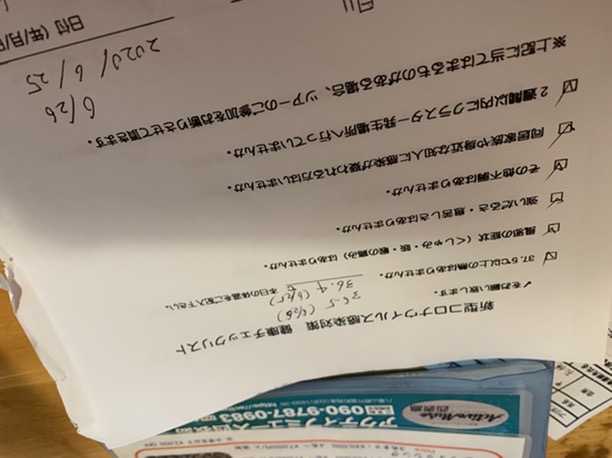 新型コロナウイルス感染対策 健康チェックリスト
✓をお願い致します。
36.5 (6/26)
36.4 (6/25)
☑ 37.5℃以上の熱はありませんか。 ℃ 本日の体温をご記入下さい。
☑ 風邪の症状（くしゃみ・咳・喉の痛み）はありませんか。
☑ 強いだるさ・息苦しさはありませんか。
☑ その他不調はありませんか。
☑ 同居家族や身近な知人に感染が疑われる方はいませんか。
☑ 2週間以内にクラスター発生場所へ行っていませんか。
※上記に当てはまるものがある場合、ツアーのご参加をお断りさせて頂きます。
6/26
2020/6/25
日付（年/月/
ActiveMuse
西表島
アクティブミューズ
090-9787-0983